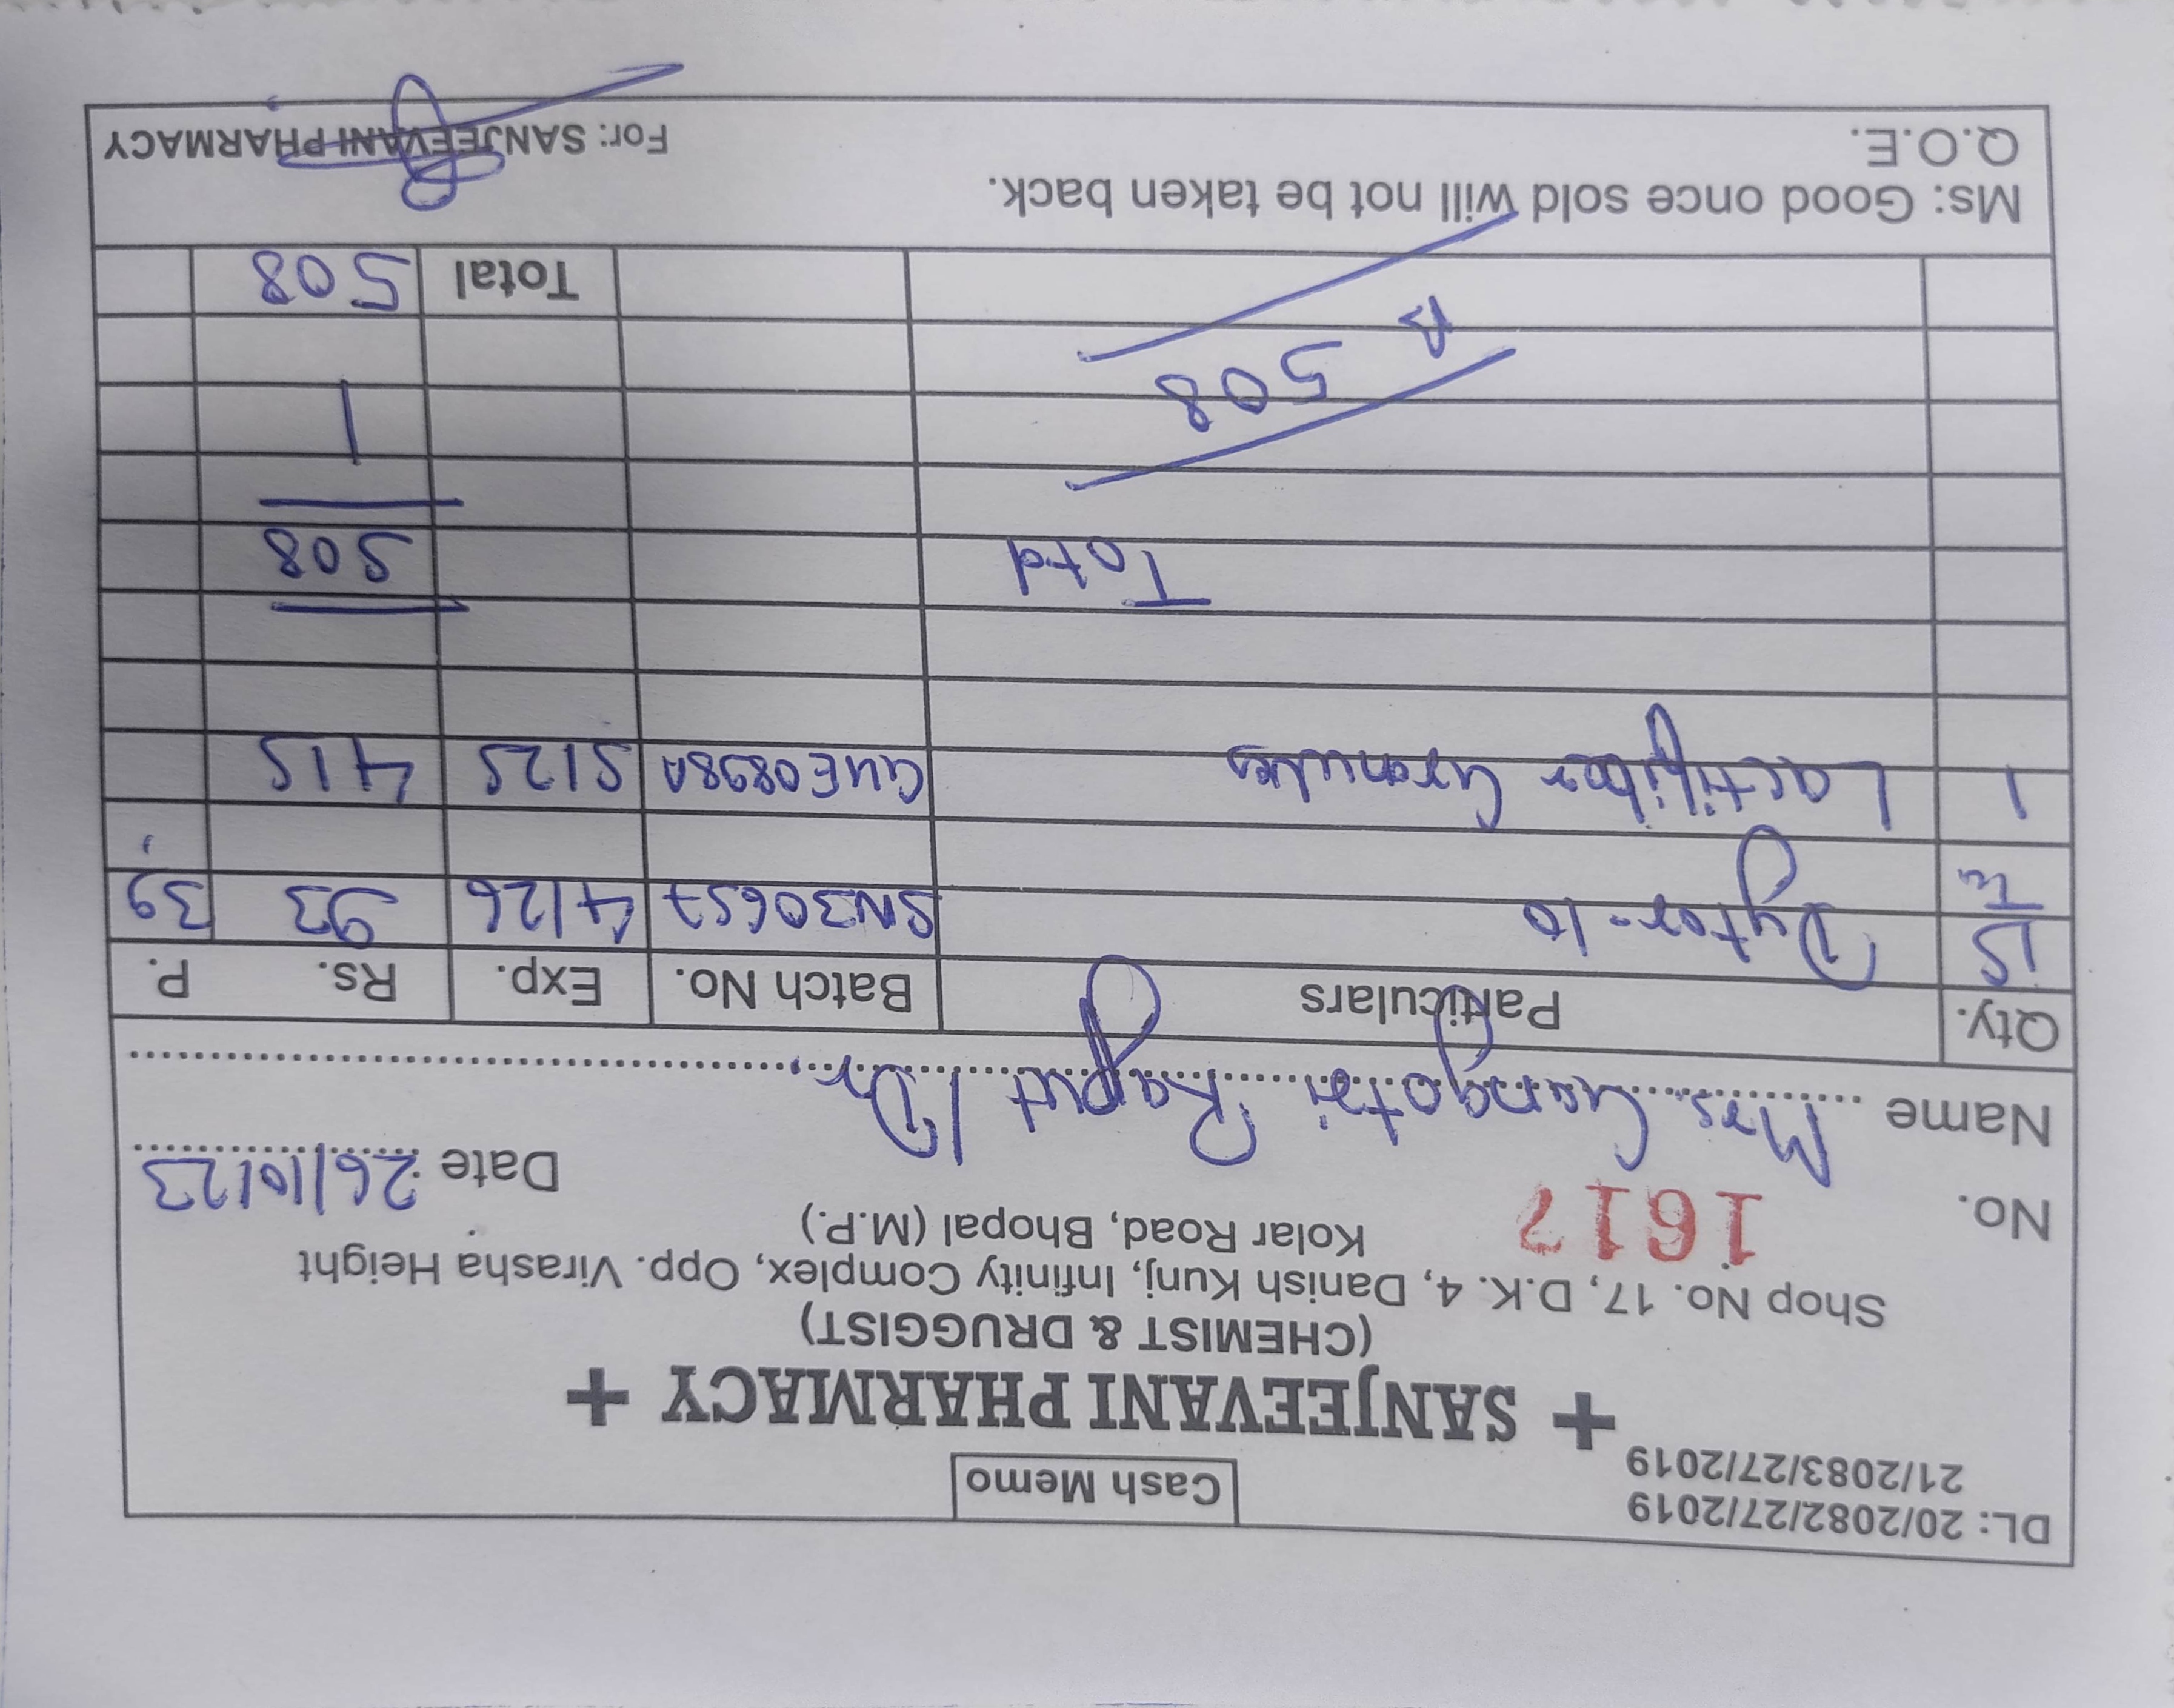 DL: 20/2082/27/2019
21/2083/27/2019
Cash Memo
+ SANJEEVANI PHARMACY +
(CHEMIST & DRUGGIST)
Shop No. 17, D.K. 4, Danish Kunj, Infinity Complex, Opp. Virasha Height
Kolar Road, Bhopal (M.P.)
No. 1617 Date 26/10/23
Name Mrs. Gangotri Rajput / Dr.
Qty. Particulars Batch No. Exp. Rs. P.
15 Dytor-10 SN30657 4/26 93 39
1 Lactifiber Granules GUE0898A 5/25 415
Total 508
508
Total 508
Ms: Good once sold will not be taken back.
Q.O.E. For: SANJEEVANI PHARMACY